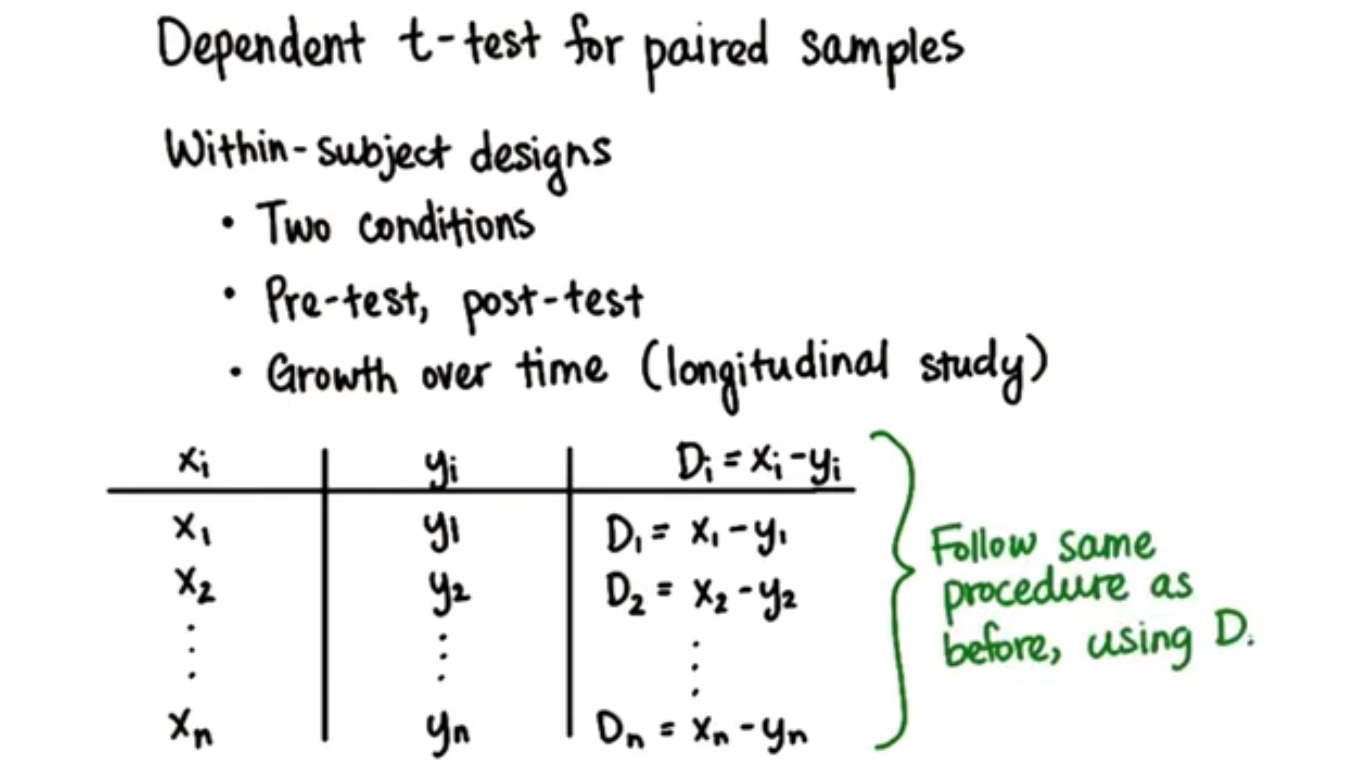 Dependent t-test for paired samples
Within-subject designs
• Two conditions
• Pre-test, post-test
• Growth over time (longitudinal study)
xᵢ yᵢ Dᵢ = xᵢ - yᵢ
x₁ y₁ D₁ = x₁ - y₁
x₂ y₂ D₂ = x₂ - y₂
⋮ ⋮ ⋮
xₙ yₙ Dₙ = xₙ - yₙ
Follow same
procedure as
before, using D.